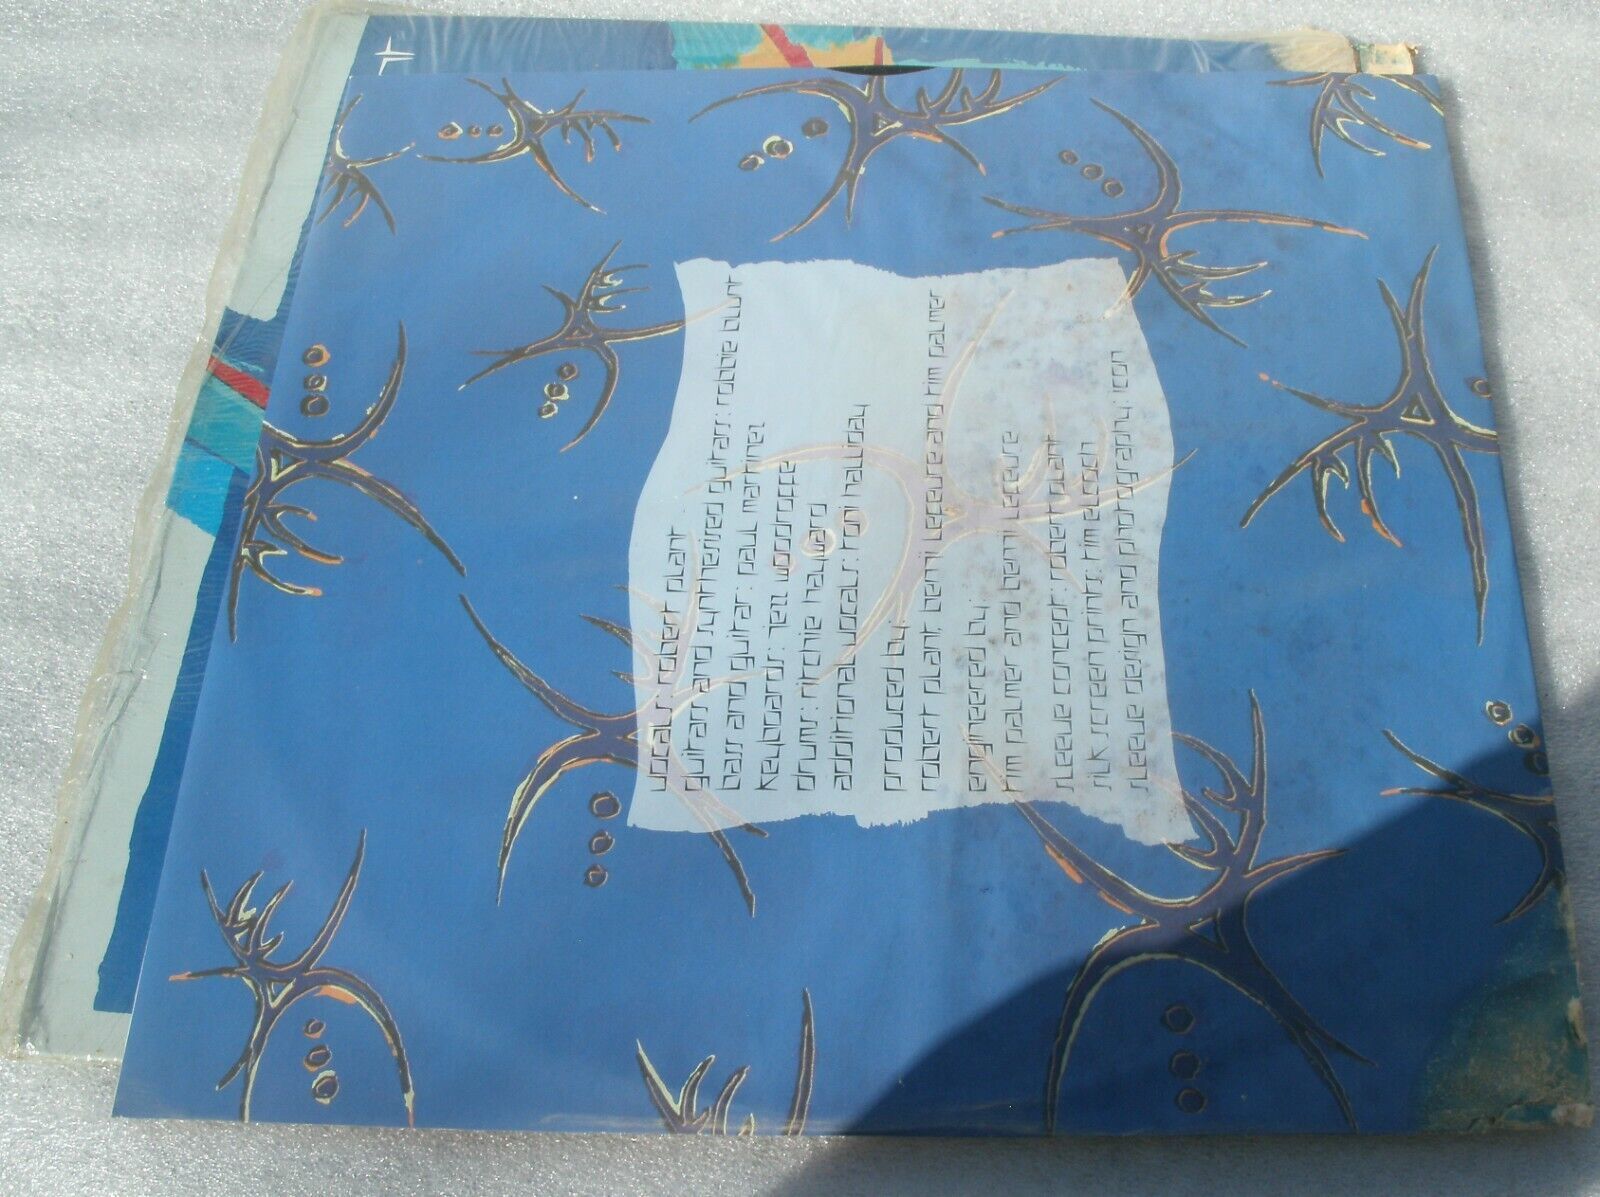 vocals: robert plant
guitars and synthesised guitars: robbie blunt
bass and guitar: paul martinez
keyboards: jezz woodroffe
drums: richie hayward
additional vocals: toni halliday
produced by
robert plant, benji lefevre and tim palmer
engineered by
tim palmer and benji lefevre
sleeve concept: robert plant
silk screen prints: tim eustach
sleeve design and photography: icon